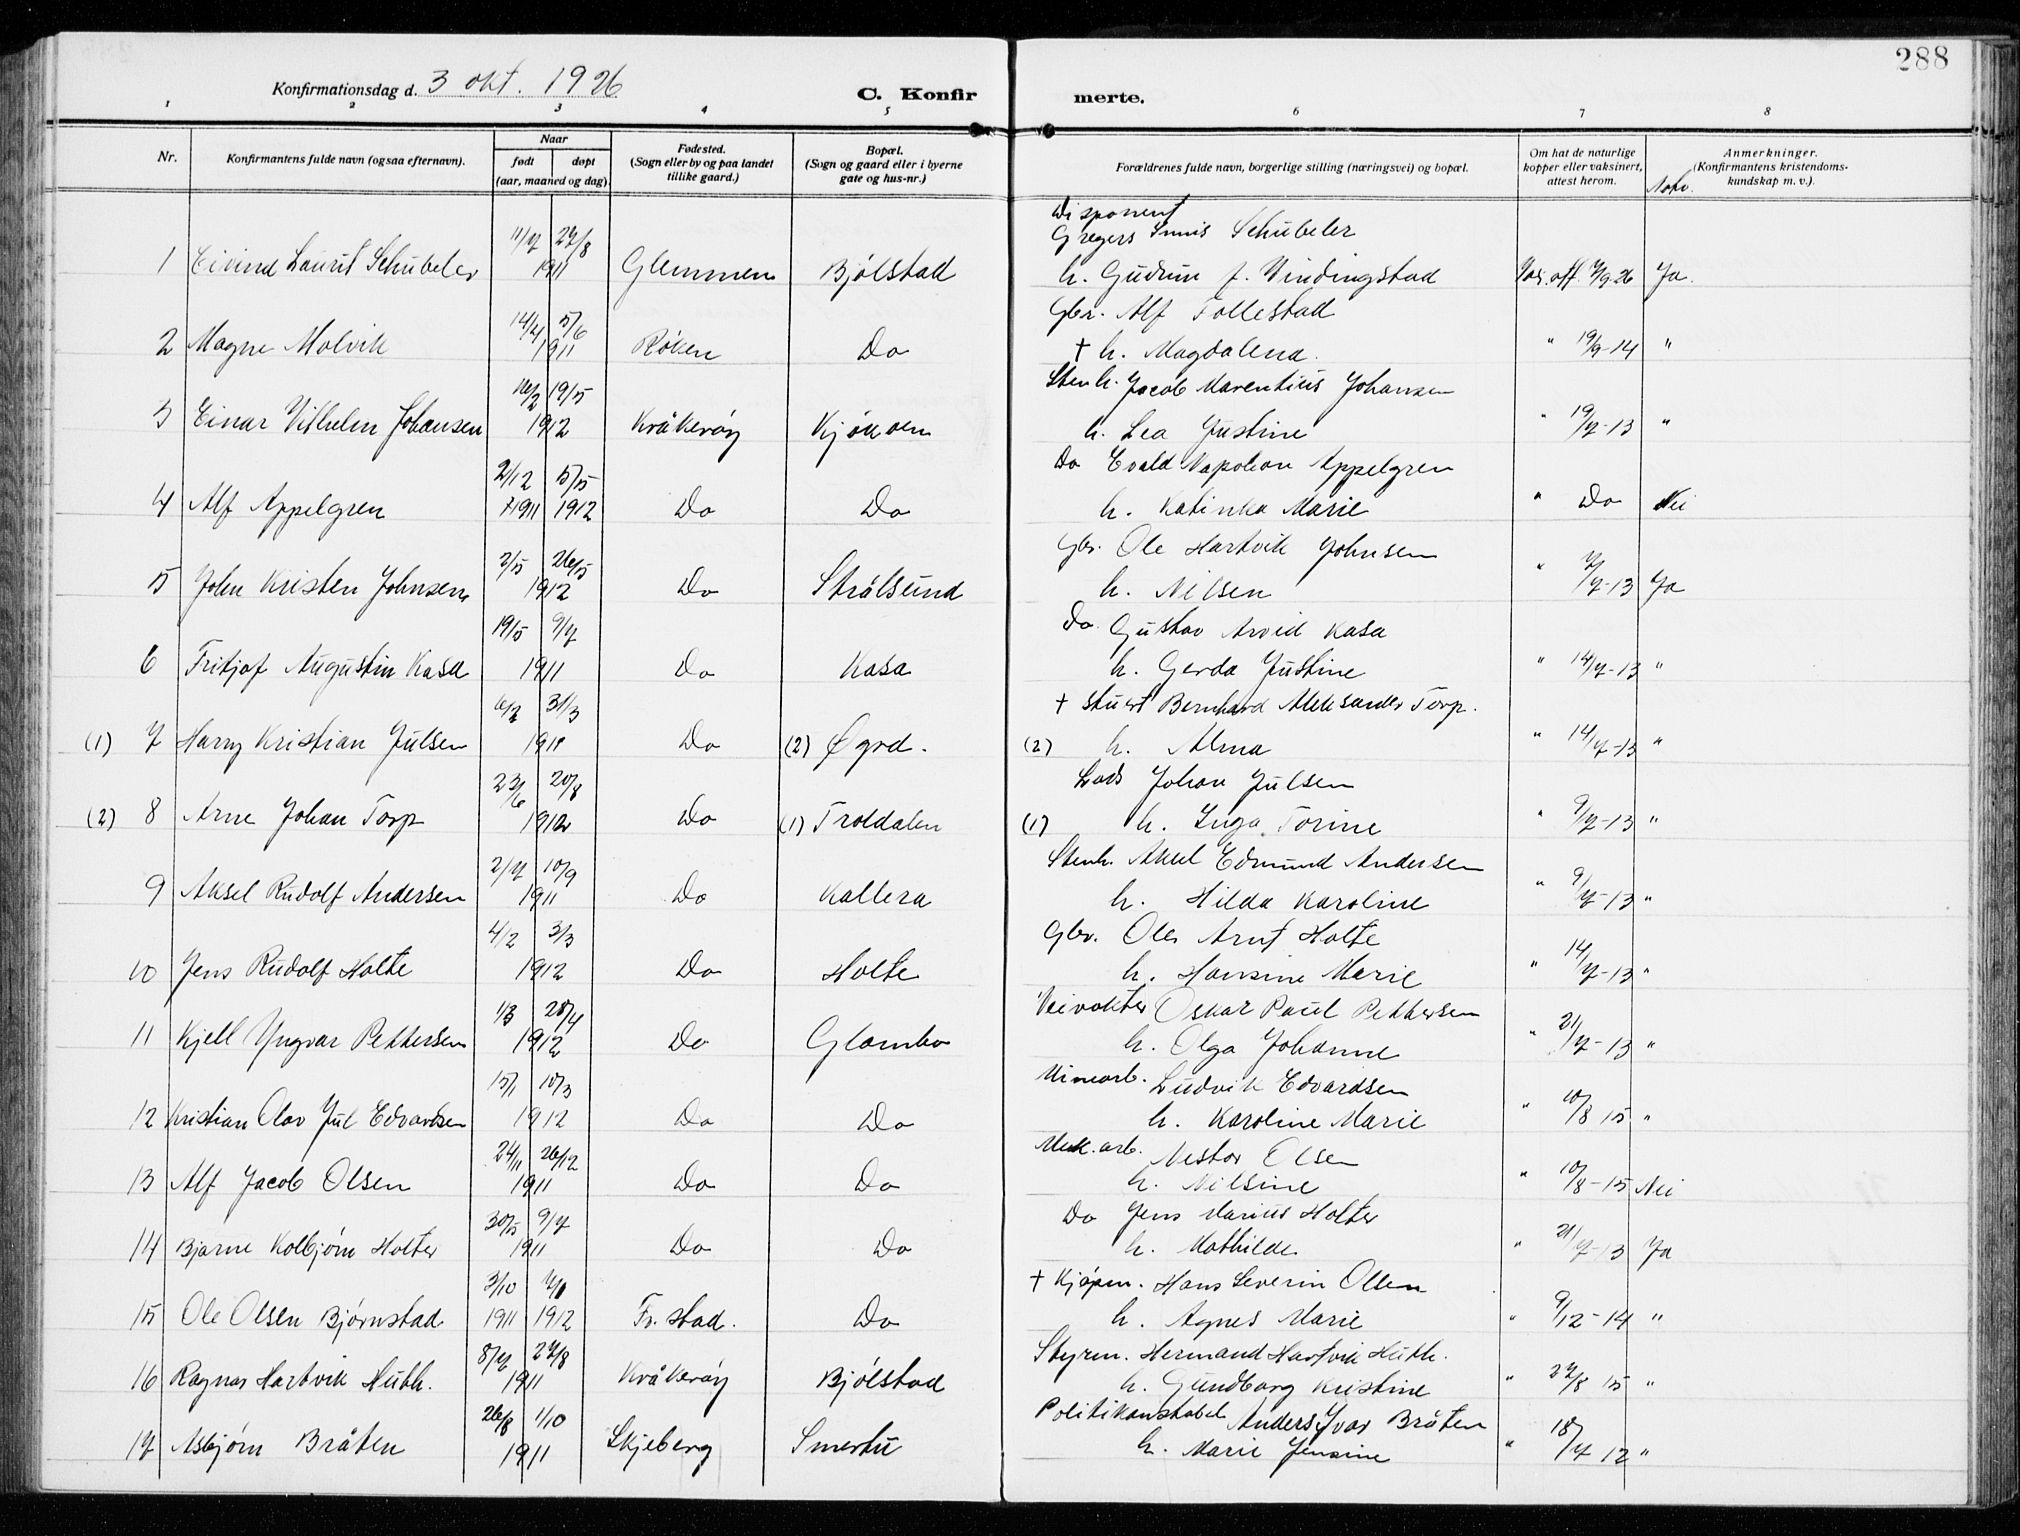 288
Konfirmationsdag d. 3 okt. 1926
C. Konfir merte.
1 2 3 4 5 6 7 8
Nr.
Konfirmantens fulde navn (ogsaa efternavn).
Naar
født døpt
(aar, maaned og dag).
Fødested.
(Sogn eller by og paa landet
tillike gaard.)
Bopæl.
(Sogn og gaard eller i byerne
gate og hus-nr.)
Forældrenes fulde navn, borgerlige stilling (næringsvei) og bopæl.
Om hat de naturlige
kopper eller vaksinert,
attest herom.
Anmerkninger.
(Konfirmantens kristendoms-
kundskap m. v.).
Disponent
Gregers Schübeler
1 Eivind Laurit Schübeler 11/7 27/8 1911 Glemmen Bjølstad h. Gudrun f. Vindingstad 26 Ja.
Gbr. Alf Tollestad
2 Magne Molvik 14/4 5/6 1911 Røken Do † h. Magdalena. " 19/9-14 "
Stenh. Jacob Marentius Johansen
3 Einar Vilhelm Johansen 16/2 19/5 1912 Kråkerøy Kjøkøen h. Lea Justine " 19/7-13 "
Do Evald Napoleon Appelgren
4 Alf Appelgren 2/12 1911 5/5 1912 Do Do h. Katinka Marie " Do Nei
Gbr. Ole Hartvik Johnsen
5 John Kristen Johnsen 2/5 26/5 1912 Do Strålsund h. Nilsen " 7/7-13 Ja
Do. Gustav Arvid Kasa
6 Fritjof Augustin Kasa 19/5 9/7 1911 Do Kasa h. Gerda Justine " 14/7-13 "
† Stuert Bernhard Aleksander Torp.
(1) 7 Harry Kristian Julsen 31/3 Do (2) Øgrd. (2) h. Alma " 14/7-13 "
Lods Johan Julsen
(2) 8 Arne Johan Torp 23/6 20/8 Do (1) Troldalen (1) h. Inga Torine " 9/7-13 "
Stenh. Aksel Edmund Andersen
9 Aksel Rudolf Andersen 2/7 10/9 1911 Do Kallera h. Hilda Karoline " 9/7-13 "
Gbr. Ole Arnt Holte
10 Jens Rudolf Holte 4/2 3/3 1912 Do Holte h. Hansine Marie " 14/7-13 "
Veivokter Oskar Paul Pettersen
11 Kjell Yngvar Pettersen 1/3 28/4 1912 Do Glombo h. Olga Johanne " 21/7-13 "
Minearb. Ludvik Edvardsen
12 Kristian Olav Jul Edvardsen 15/1 10/3 1912 Do Do h. Karoline Marie " 10/8 15 "
Mek. arb. Nestor Olsen
13 Alf Jacob Olsen 24/11 26/12 1911 Do Do h. Nilsine " 10/8-15 Nei
Do Jens Marius Holter
14 Bjarne Kolbjørn Holter 30/5 9/7 1911 Do Do h. Mathilde " 21/7-13 Ja
† Kjøpm. Hans Severin Olsen
15 Ole Olsen Bjørnstad 3/10 1911 1912 Fr. stad. Do h. Agnes Marie " 9/12-14 "
Styrm. Hermand Hartvik Huth.
16 Ragnar Hartvik Huth. 8/7 27/8 1911 Kråkerøy Bjølstad h. Gundborg Kristine " 27/8 15 "
Politikonstabel Anders Yvar Bråten
17 Asbjørn Bråten 26/8 1/10 1911 Skjeberg Smertu h. Marie Jensine " 18/7 12 "